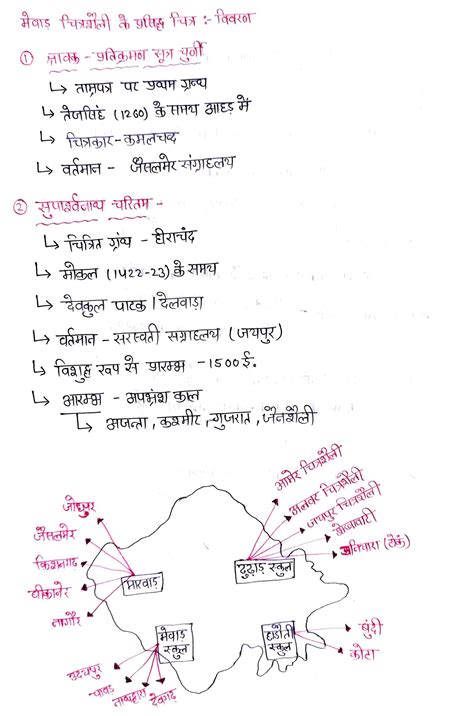 मेवाड़ चित्रशैली के प्रसिद्ध चित्र :- विवरण
① श्रावक - प्रतिक्रमन सूत्र चुर्नी
↳ ताम्रपत्र पर प्रथम ग्रन्थ
↳ तेजसिंह (1260) के समय आहड़ में
↳ चित्रकार - कमलचंद
↳ वर्तमान - जैसलमेर संग्राहलय
② सुपार्श्वनाथ चरितम -
↳ चित्रित ग्रंथ - हीराचंद
↳ मोकल (1422-23) के समय
↳ देवकुल पाटक / देलवाड़ा
↳ वर्तमान - सरस्वती सग्राहलय (जयपुर)
↳ विशुद्ध रूप से प्रारम्भ - 1500 ई.
↳ आरम्भ - अपभ्रंश काल
↳ अजन्ता, कश्मीर, गुजरात, जैनशैली
आमेर चित्रशैली
अलवर चित्रशैली
जयपुर चित्रशैली
शेखावाटी
उनियारा (टोंक)
ढूढाड़ स्कुल
जोधपुर
जैसलमेर
किशनगढ़
बीकानेर
नागौर
मारवाड़
मेवाड़ स्कुल
उदयपुर
चावंड
नाथद्वारा
देवगढ़
हाडौती स्कुल
बुंदी
कोटा